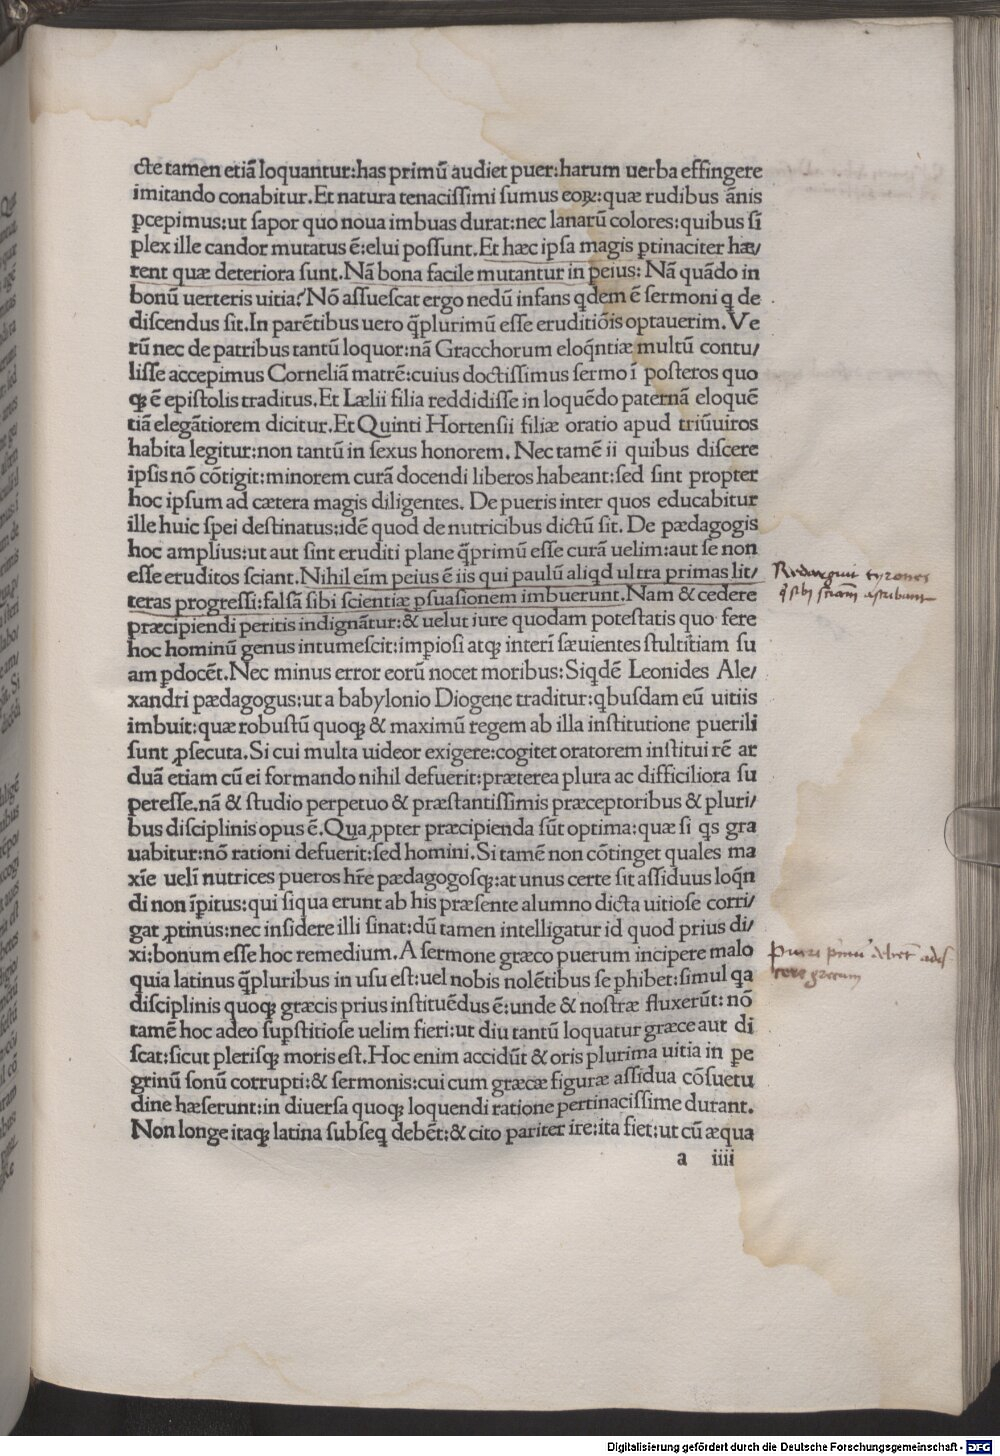 cte tamen etiā loquantur:has primū audiet puer:harum uerba effingere
imitando conabitur.Et natura tenacissimi sumus eoꝝ:quæ rudibus ānis
ꝑcepimus:ut sapor quo noua imbuas durat:nec lanarū colores:quibus sī
plex ille candor mutatus ē:elui possunt.Et hæc ipsa magis ꝑtinaciter hæ/
rent quæ deteriora sunt.Nā bona facile mutantur in peius: Nā quādo in
bonū uerteris uitia?Nō assuescat ergo nedū infans q̄dem ē sermoni q̄ de
discendus sit.In parētibus uero q̄plurimū esse eruditiōis optauerim.Ve
rū nec de patribus tantū loquor:nā Gracchorum eloq̄ntiæ multū contu/
lisse accepimus Corneliā matrē:cuius doctissimus sermo ī posteros quo
qꝫ ē epistolis traditus.Et Lælii filia reddidisse in loquēdo paternā eloquē
tiā elegātiorem dicitur.Et Quinti Hortensii filiæ oratio apud triūuiros
habita legitur:non tantū in sexus honorem. Nec tamē ii quibus discere
ipsis nō cōtigit:minorem curā docendi liberos habeant:sed sint propter
hoc ipsum ad cætera magis diligentes. De pueris inter quos educabitur
ille huic spei destinatus:idē quod de nutricibus dictū sit. De pædagogis
hoc amplius:ut aut sint eruditi plane q̄primū esse curā uelim:aut se non
esse eruditos sciant.Nihil eīm peius ē iis qui paulū aliqd ultra primas lit/
teras progressi:falsā sibi scientiæ ꝑsuasionem imbuerunt.Nam & cedere
præcipiendi peritis indignātur:& uelut iure quodam potestatis quo fere
hoc hominū genus intumescit:imꝑiosi atqꝫ interī sæuientes stultitiam su
am ꝑdocēt.Nec minus error eorū nocet moribus:Siqdē Leonides Ale/
xandri pædagogus:ut a babylonio Diogene traditur:qbusdam eū uitiis
imbuit:quæ robustū quoqꝫ & maximū regem ab illa institutione puerili
sunt ꝓsecuta.Si cui multa uideor exigere:cogitet oratorem institui rē ar
duā etiam cū ei formando nihil defuerit:præterea plura ac difficiliora su
peresse.nā & studio perpetuo & præstantissimis præceptoribus & pluri/
bus disciplinis opus ē.Qua ꝓpter præcipienda sūt optima:quæ si qs gra
uabitur:nō rationi defuerit:sed homini.Si tamē non cōtinget quales ma
xīe uelī nutrices pueros hr̄e pædagogosqꝫ:at unus certe sit assiduus loq̄n
di non īꝑitus:qui siqua erunt ab his præsente alumno dicta uitiose corri/
gat ꝓtinus:nec insidere illi sinat:dū tamen intelligatur id quod prius di/
xi:bonum esse hoc remedium.A sermone græco puerum incipere malo
quia latinus q̄pluribus in usu est:uel nobis nolētibus se ꝑhibet:simul qa
disciplinis quoqꝫ græcis prius instituēdus ē:unde & nostræ fluxerūt: nō
tamē hoc adeo suꝑstitiose uelim fieri:ut diu tantū loquatur græce aut di
scat:sicut plerisqꝫ moris est.Hoc enim accidūt & oris plurima uitia in ꝑe
grinū sonū corrupti:& sermonis:cui cum græcæ figuræ assidua cōsuetu
dine hæserunt:in diuersa quoqꝫ loquendi ratione pertinacissime durant.
Non longe itaqꝫ latina subseq̄ debēt:& cito pariter ire:ita fiet:ut cū æqua
a iiii
Redarguit tyrones
q̄ sibi sciam̄ ascribunt
Pueri primū debent
græcum
Digitalisierung gefördert durch die Deutsche Forschungsgemeinschaft - DFG